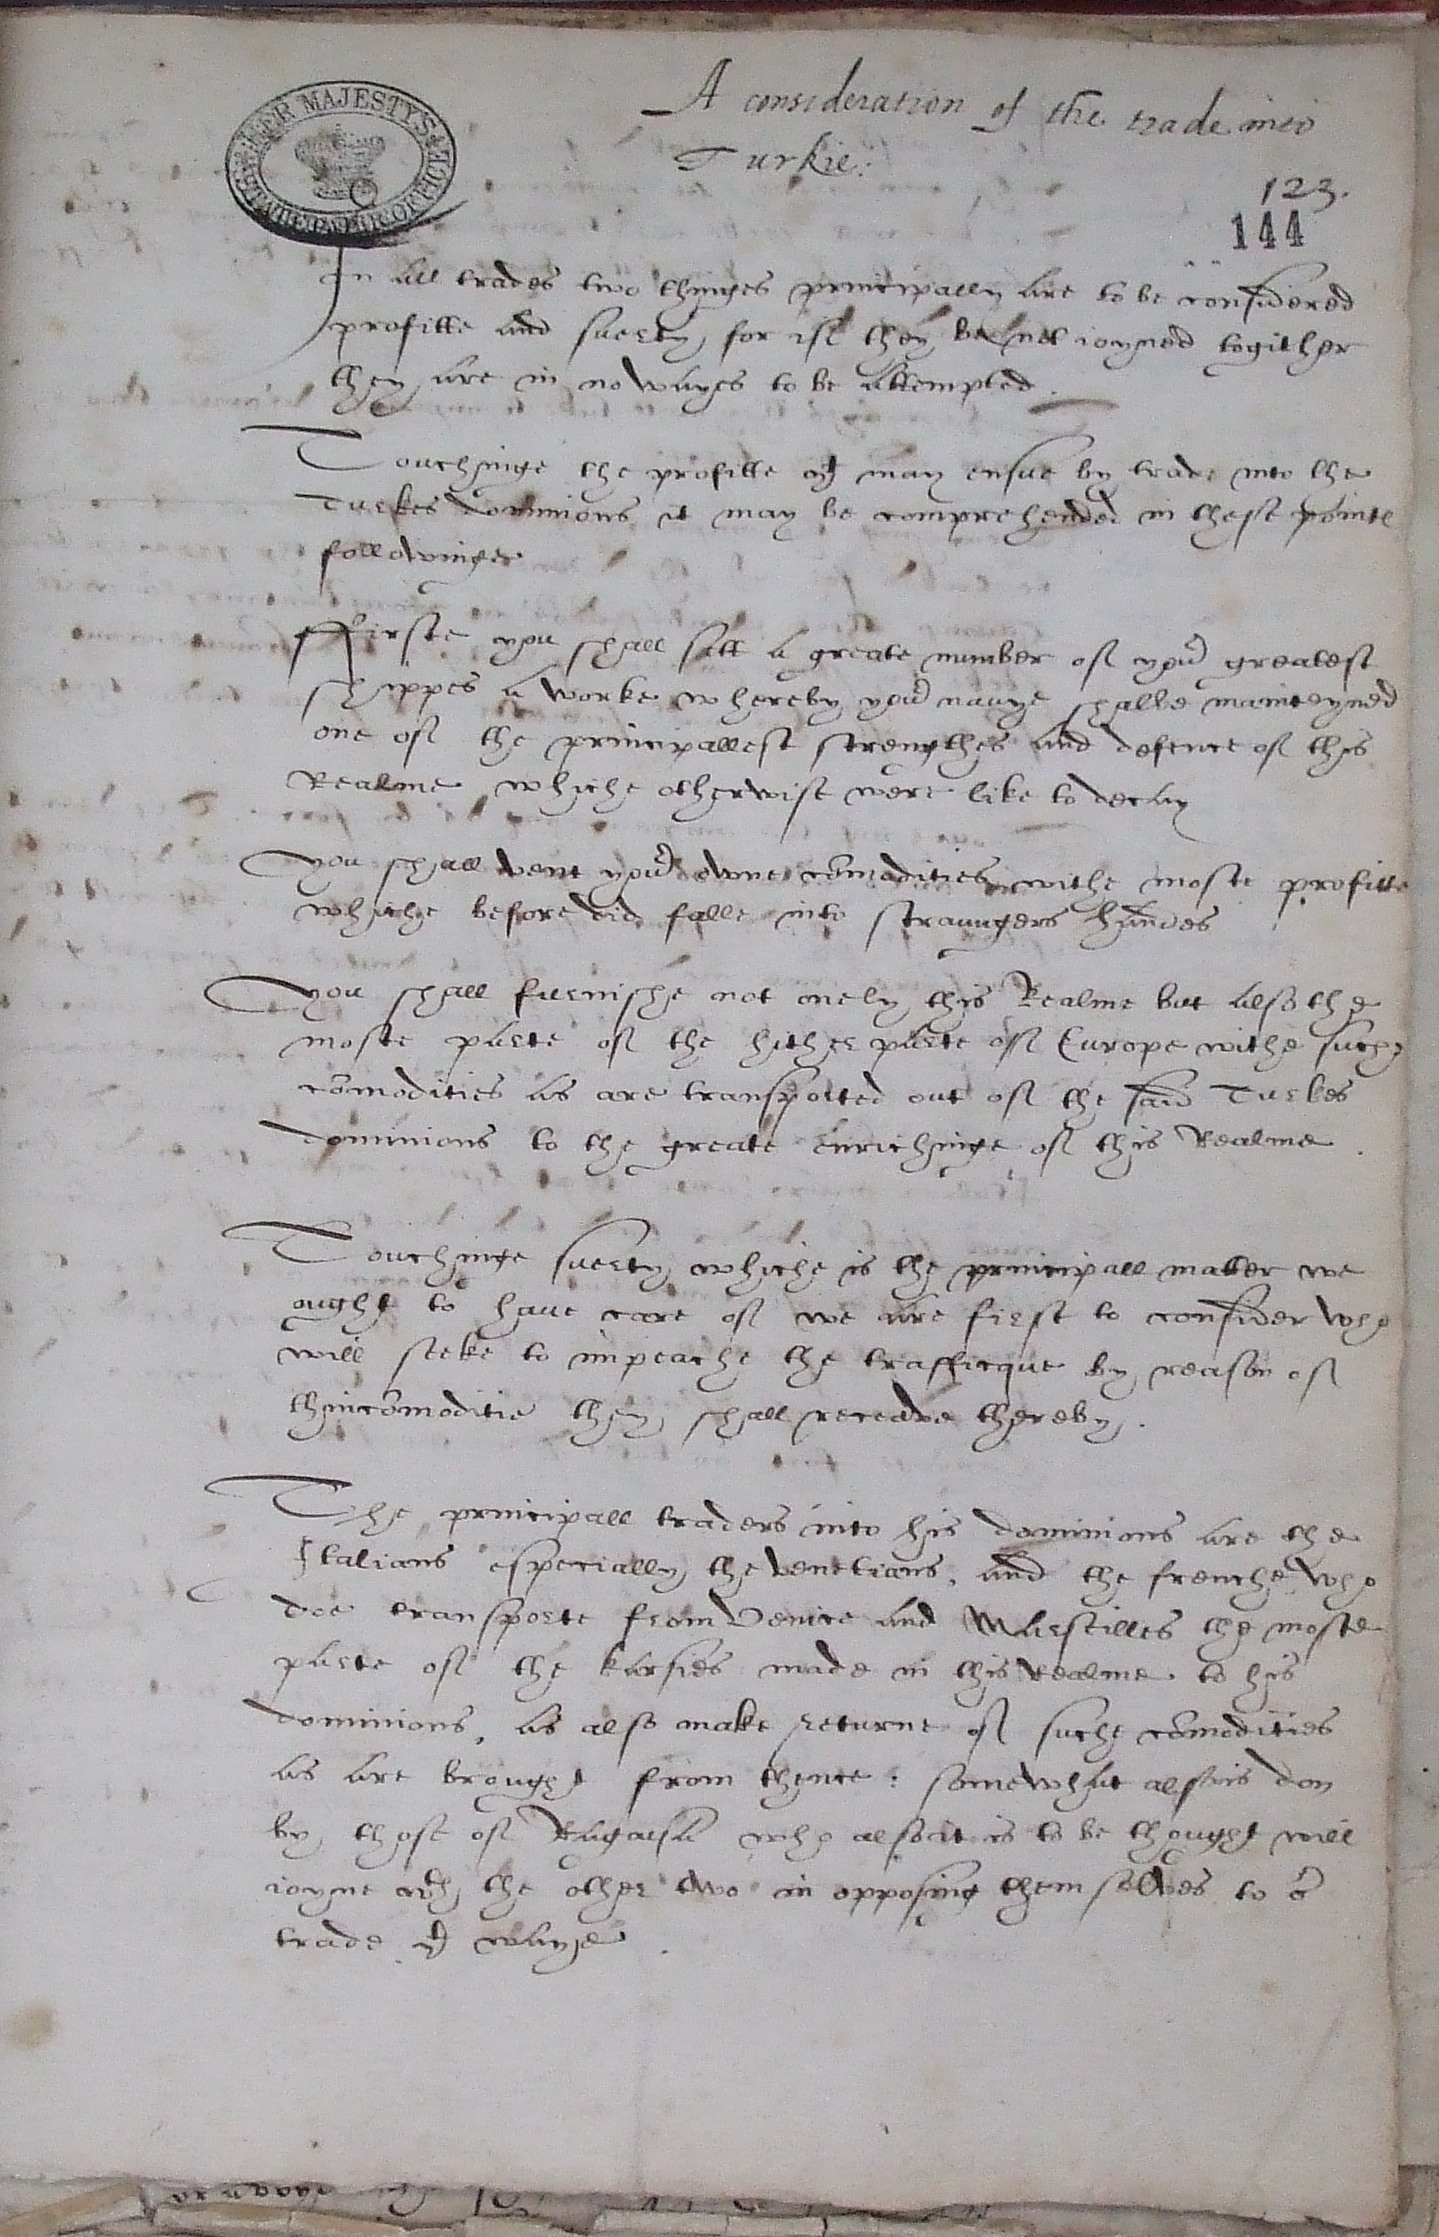 A consideration of the trade into
Turkie:
HER MAJESTY'S STATE PAPER OFFICE
123.
144
In all trades two thinges principally are to be considered
profitte and suerty, for if they be not ioyned togither
they are in no wayes to be attempted.
Touchinge the profitte yt may ensue by trade into the
Turkes dominions it may be comprehended in these pointes
followinge
Firste you shall sett a greate number of your greatest
shippes a worke whereby your navye shalbe mainteyned
one of the principallest strengthes and defence of this
Realme whiche otherwise were like to decay
You shall vent your owne comodities withe moste profitte
whiche before did falle into straungers handes
You shall furnishe not onely this Realme but also the
moste parte of the hither parte of Europe withe suche
comodities as are transported out of the said Turkes
dominions to the greate enrichinge of this Realme.
Touchinge suerty whiche is the principall matter we
ought to have care of we are first to consider who
will seeke to impeache the trafficque by reason of
thincomoditie they shall receave thereby.
The principall traders into his dominions are the
Italians especially the Venetians, and the frenche who
doe transporte from Venice and Marseilles the moste
parte of the karsies made in this Realme to his
dominions, as also make returne of suche comodities
as are brought from thence: somewhat also is don
by those of Ragousa who also it is to be thought will
ioyne wth the other two in opposing themselves to or
trade yt waye.